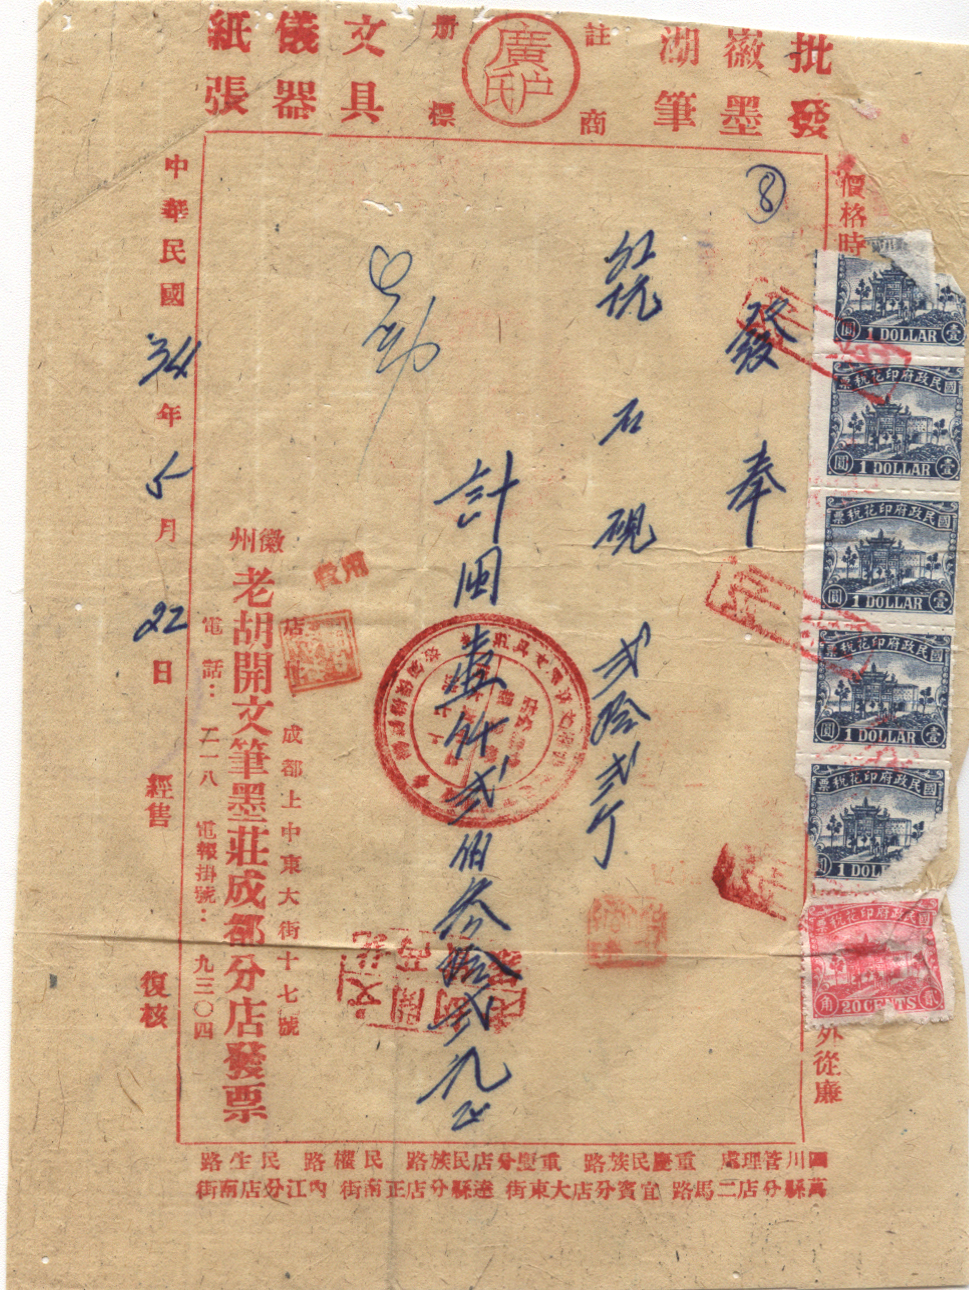 批發
徽墨
湖筆
註冊商標
廣戶氏
文具
儀器
紙張
價格時
外從廉
⑧
發奉
石硯 弍拾弍
計 壹仟弍佰叁拾弍
費用
徽州
老胡開文筆墨莊成都分店發票
店址 成都上中東大街十七號
電話：二一八 電報掛號：九三〇四
中華民國34年5月22日 經售 復核
川管理處 重慶民族路 重慶分店民族路 民權路 民生路
萬縣分店二馬路 宜賓分店大東街 達縣分店正南街 內江分店南街
1 DOLLAR
國民政府印花稅票
圓 1 DOLLAR 壹
國民政府印花稅票
圓 1 DOLLAR 壹
國民政府印花稅票
圓 1 DOLLAR 壹
國民政府印花稅票
1 DOL
國民政府印花稅票
角 20 CENTS 貳